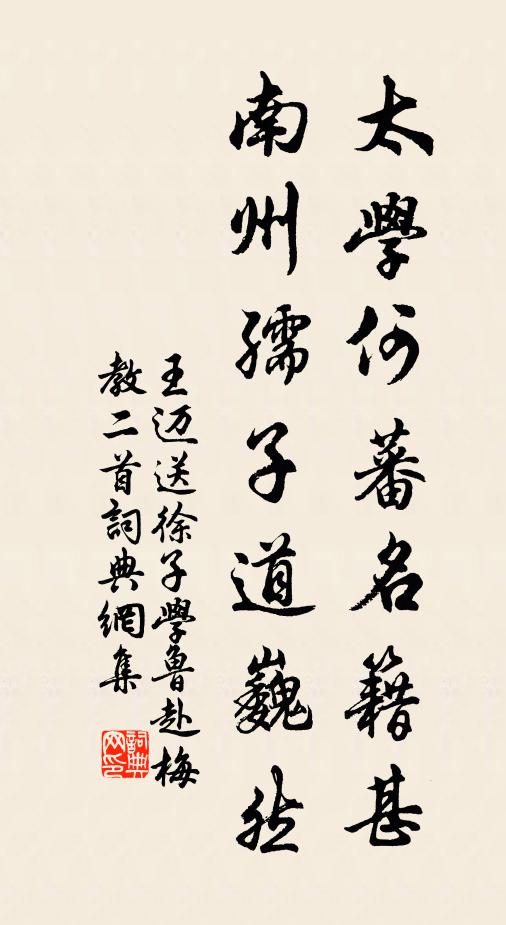 太學何蕃名籍甚
南州孺子道巍然
王迈送徐子學魯赴梅
教二首詞典網集
詞典网印